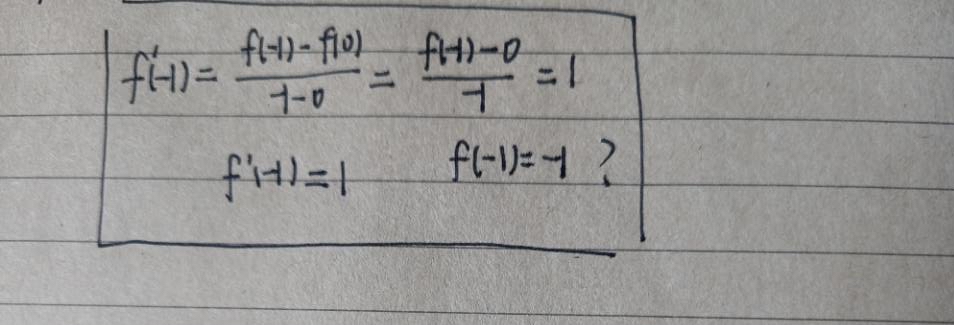 f'(-1) = \frac{f(-1) - f(0)}{-1-0} = \frac{f(-1) - 0}{-1} = 1
f'(-1) = 1 f(-1) = -1 ?